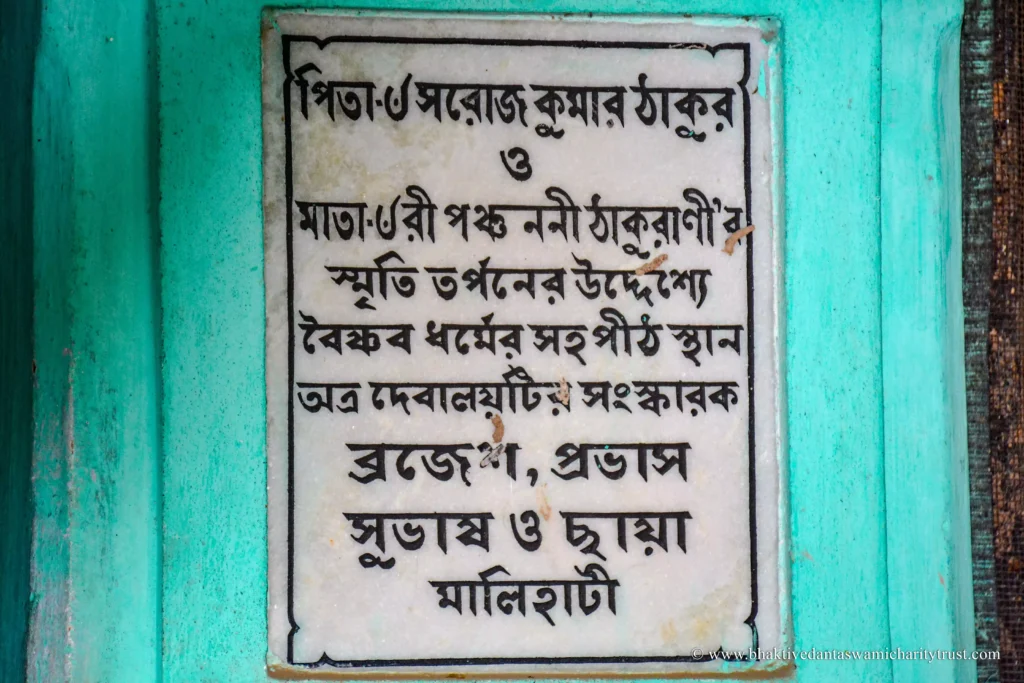 পিতা-ঁসরোজ কুমার ঠাকুর
ও
মাতা-ঁরী পঞ্চ ননী ঠাকুরাণী'র
স্মৃতি তর্পনের উদ্দেশ্যে
বৈষ্ণব ধর্মের সহ পীঠ স্থান
অত্র দেবালয়টির সংস্কারক
ব্রজেশ, প্রভাস
সুভাষ ও ছায়া
মালিহাটী
© www.bhaktivedantaswamicharitytrust.com